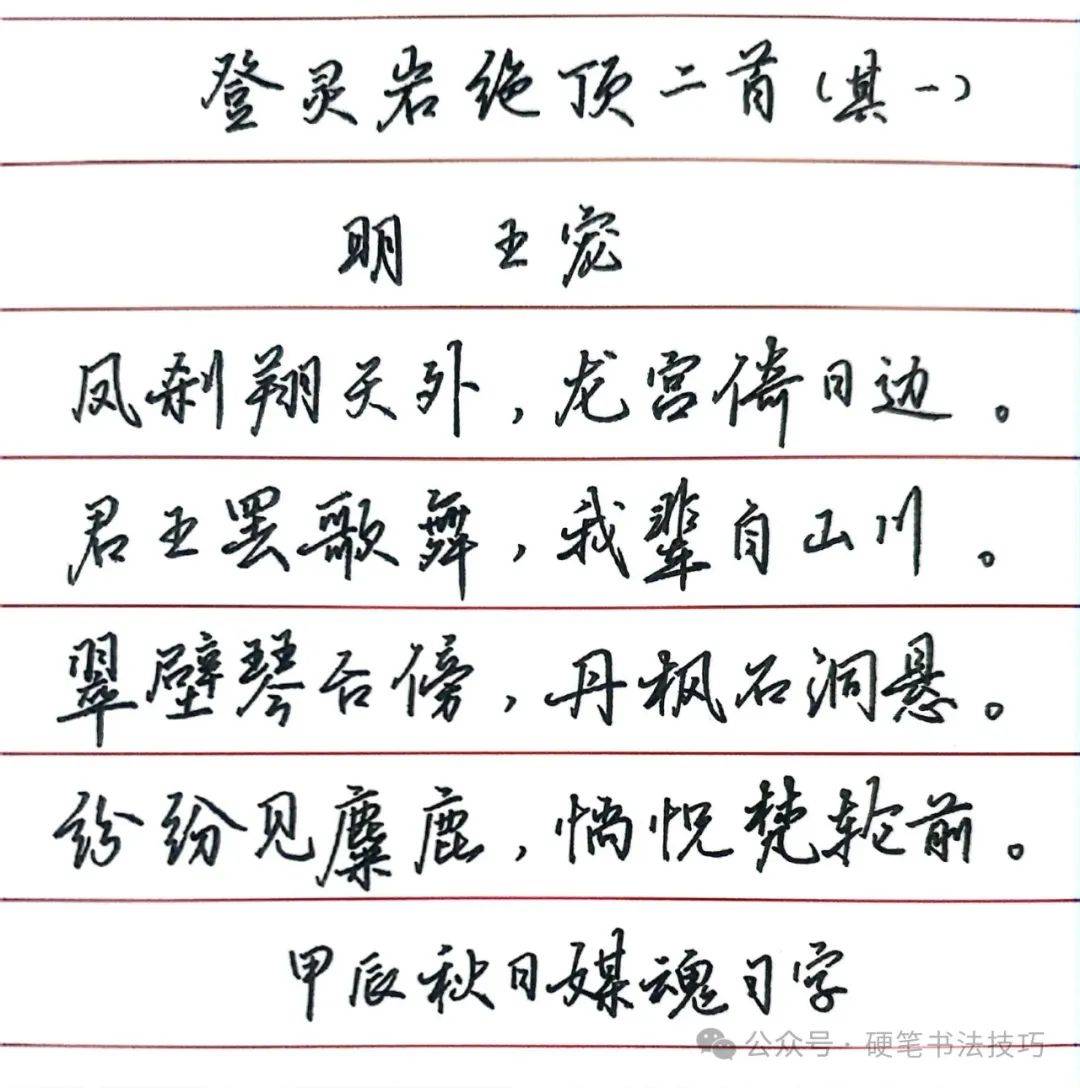 登灵岩绝顶二首(其一)
明 王宠
凤刹翔天外,龙宫倚日边。
君王罢歌舞,我辈自山川。
翠壁琴台傍,丹枫石洞悬。
纷纷见麋鹿,惝恍梵轮前。
甲辰秋日媒魂习字
公众号·硬笔书法技巧